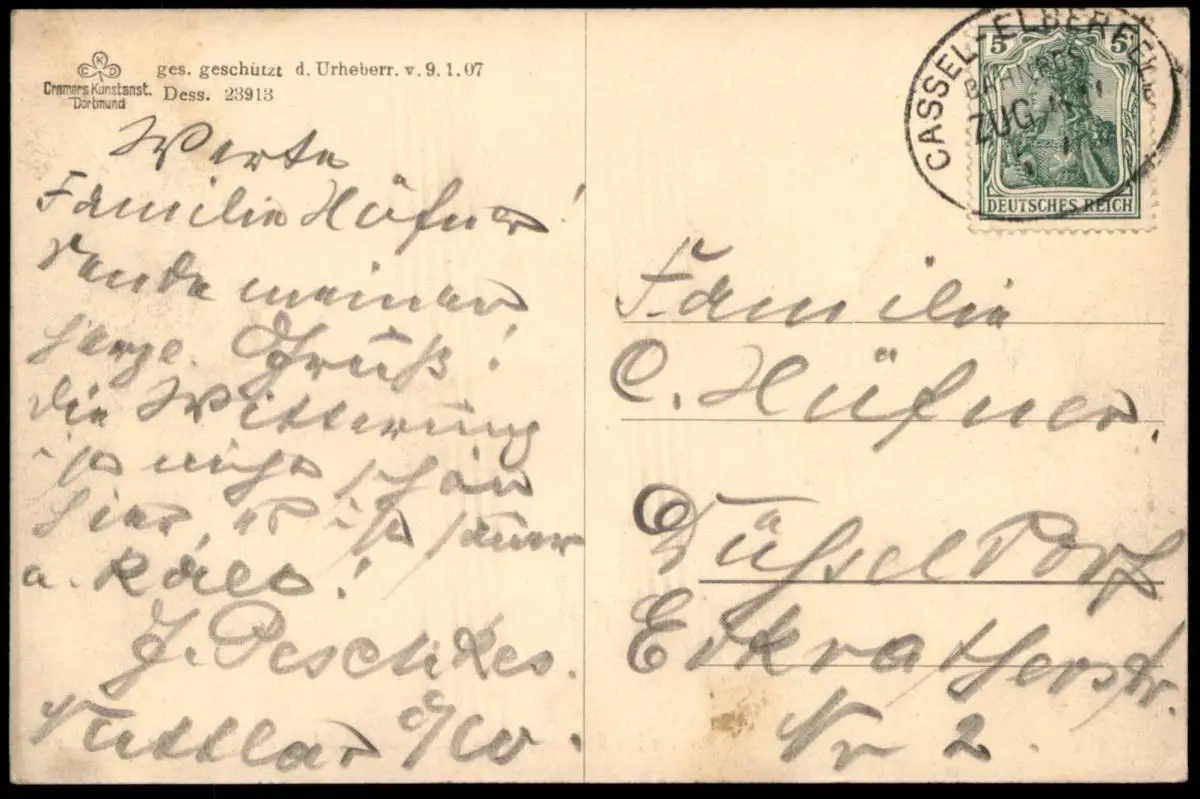 CKD
Cramers Kunstanst.
Dortmund
ges. geschützt d. Urheberr. v. 9. 1. 07
Dess. 23913
Werte
Familie Hüfner!
Sende meinen
herzl. Gruß!
die Witterung
ist nicht schön
hier, es ist
u. kalt!
J. Peschkes.
Nuttlar
CASSEL-ELBERFELD
BAHNPOST
ZUG
5 5
DEUTSCHES REICH
Familie
C. Hüfner.
Düsseldorf
Erkratherstr.
Nr 2.